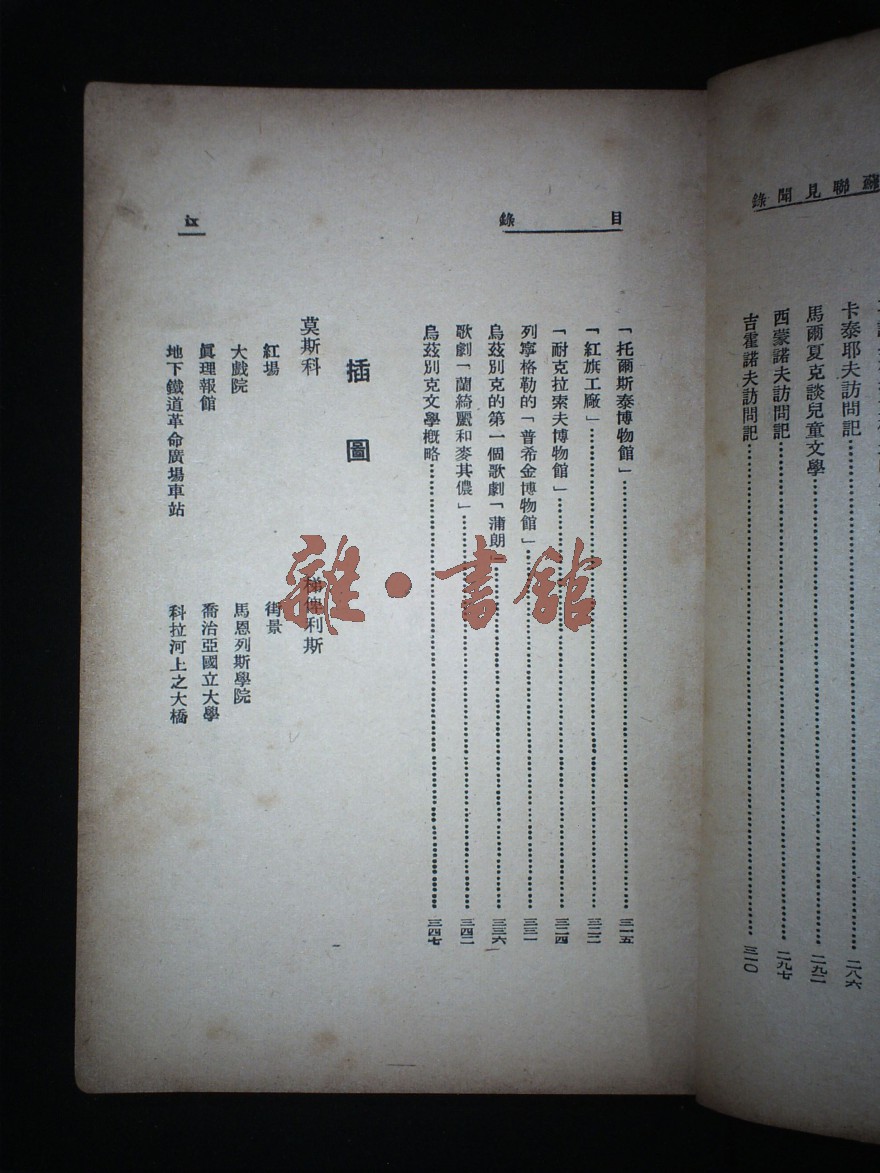 蘇聯見聞錄
卡泰耶夫訪問記 二八六
馬爾夏克談兒童文學 二九二
西蒙諾夫訪問記 二九七
吉霍諾夫訪問記 三一〇
目錄
ix
「托爾斯泰博物館」 三一五
「紅旗工廠」 三二二
「耐克拉索夫博物館」 三二四
列寧格勒的「普希金博物館」 三三一
烏茲別克的第一個歌劇「蒲朗」 三三六
歌劇「蘭綺麗和麥其儂」 三四二
烏茲別克文學概略 三四七
插圖
莫斯科
紅場
大戲院
眞理報館
地下鐵道革命廣場車站
梯俾利斯
街景
馬恩列斯學院
喬治亞國立大學
科拉河上之大橋
雜·書館